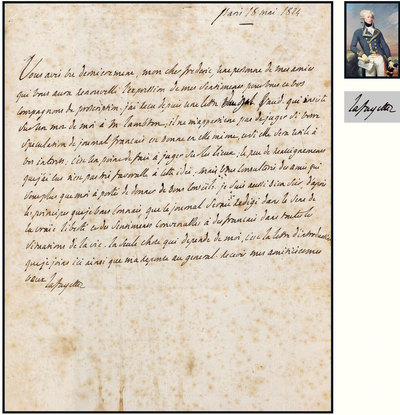 Paris 18 mai 1824
Vous avés vu dernierement, mon cher frederic une personne de mes amies
qui vous aura renouvellé l'expression de mes sentimens pour vous et vos
compagnons de proscription. j'ai recu depuis une lettre
sur un mot de moi à M. il ne m'appartient pas de juger si votre
speculation de journal francais est bonne en elle même, et si elle sera utile à
vos interets. c'est un point de fait à juger sur les lieux, le peu de renseignemens
que j'ai eus n'est pas très favorable à cette idée, mais vous consulterés des amis qui
sont plus que moi à portée de donner de bons conseils. je suis aussi bien sûr, d'après
les principes que je vous connais que le journal serait redigé dans le sens de
la vraie liberté et des sentimens convenables à des francais dans toutes les
situations de la vie. la seule chose qui depende de moi, c'est la lettre d'introduction
que je joins ici ainsi que ma reponse au general. recevés mes amitiés et mes
vœux
lafayette
lafayette